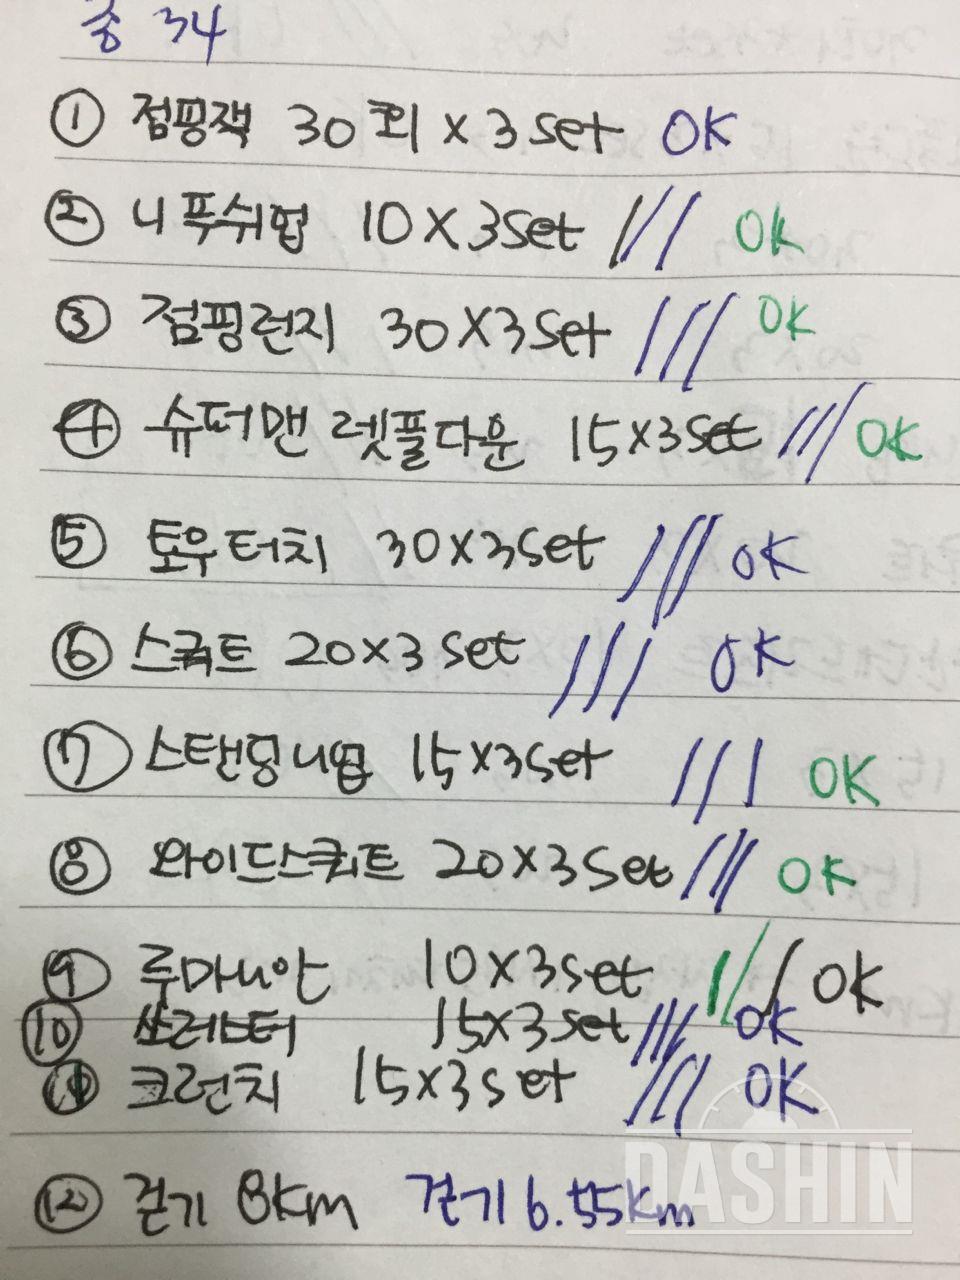 총 34
① 점핑잭 30회 x 3set OK
② 니푸쉬업 10X3set /// OK
③ 점핑런지 30X3set /// OK
④ 슈퍼맨 렛풀다운 15X3set /// OK
⑤ 토우터치 30X3set /// OK
⑥ 스쿼트 20X3set /// OK
⑦ 스탠딩니업 15X3set /// OK
⑧ 와이드스쿼트 20X3set /// OK
⑨ 루마니안 10X3set /// OK
⑩ 15X3set /// OK
⑪ 크런치 15X3set /// OK
⑫ 걷기 8km 걷기 6.55km
DASHIN